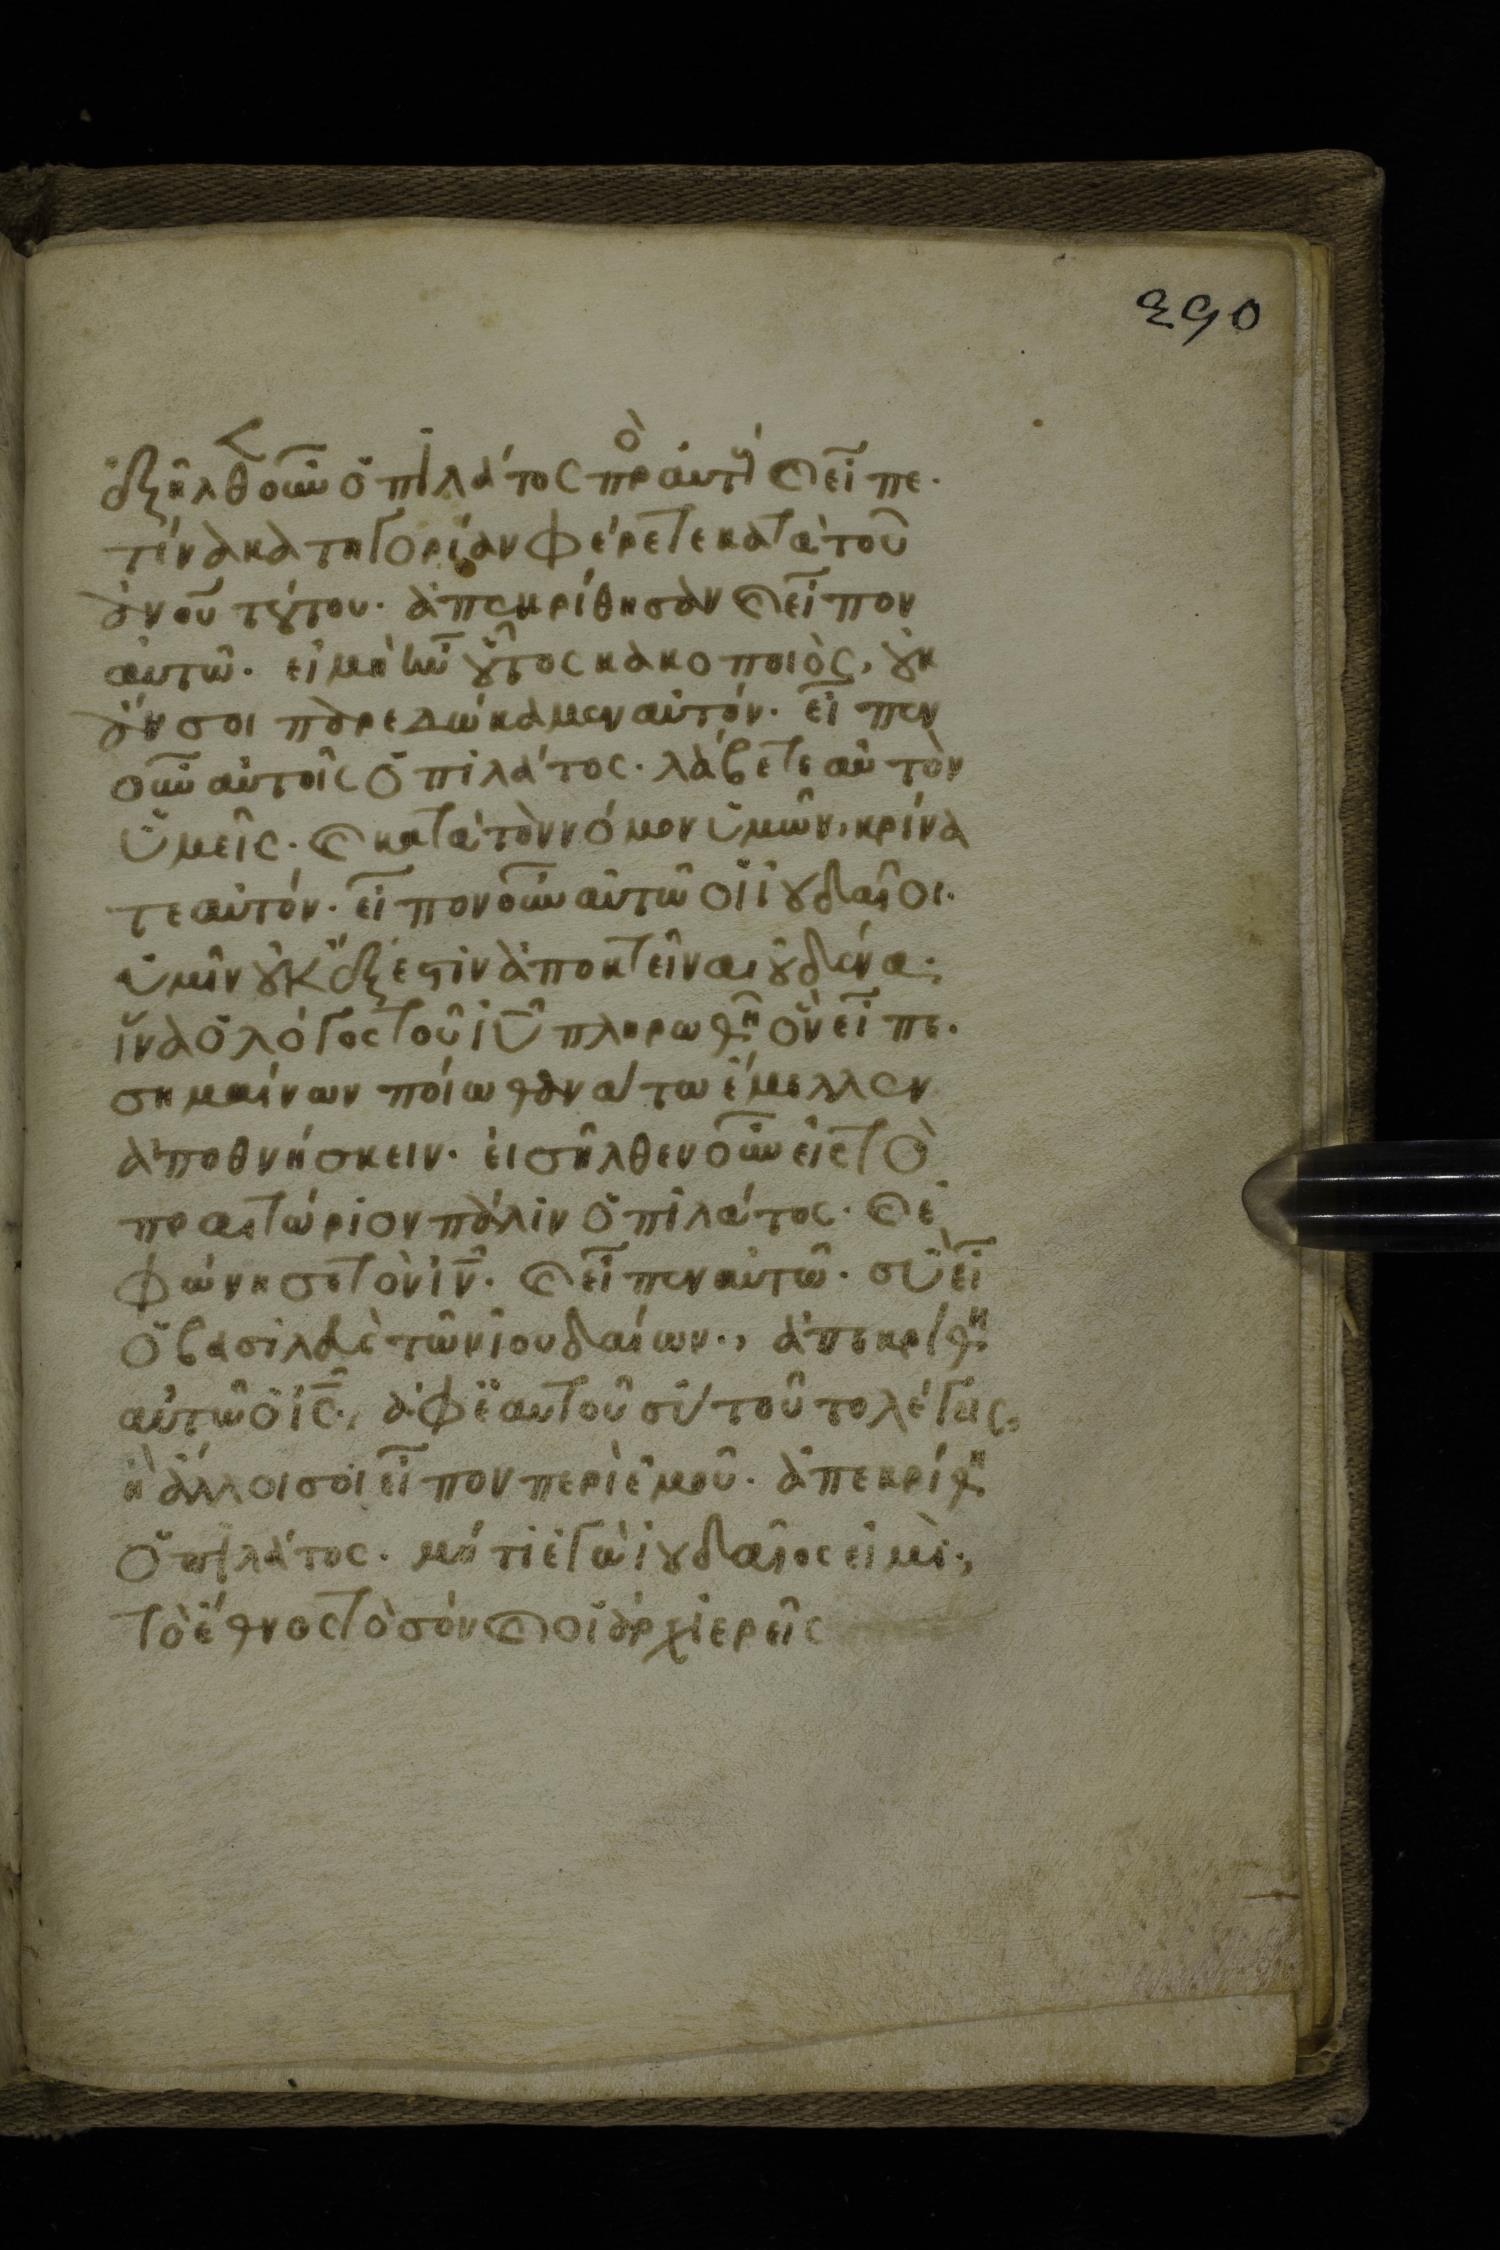 290
ἐξῆλθ οὖν ὁ πιλάτος πρὸ αὐτ καὶ εἶπε·
τίνα κατηγορίαν φέρετε κατὰ τοῦ
ἀνου τούτου· ἀπεκρίθησαν καὶ εἶπον
αὐτῶ· εἰ μὴ ἦν οὗτος κακοποιὸς, οὐκ
ἄν σοι παρεδώκαμεν αὐτόν· εἶπεν
οὖν αὐτοῖς ὁ πιλάτος· λάβετε αὐτὸν
ὑμεῖς· καὶ κατὰ τὸν νόμον ὑμῶν, κρίνα
τε αὐτόν· εἶπον οὖν αὐτῶ οἱ ἰουδαῖοι·
ὑμῖν οὐκ ἔξεστιν ἀποκτεῖναι οὐδένα·,
ἵνα ὁ λόγος τοῦ ἰυ πληρωθῆ ὃν εἶπε·
σημαίνων ποίω θανάτω ἔμελλεν
ἀποθνήσκειν· εἰσῆλθεν οὖν εἰς τὸ
πραιτώριον πάλιν ὁ πιλάτος· καὶ ἐ
φώνησε τὸν ἰν· καὶ εἶπεν αὐτῶ· σὺ εἶ
ὁ βασιλεὺς τῶν ἰουδαίων·, ἀπεκρίθη
αὐτῶ ὁ ἰς·, ἀφ ἑαυτοῦ σὺ τοῦτο λέγεις,
ἢ ἄλλοι σοι εἶπον περὶ ἐμοῦ· ἀπεκρίθη
ὁ πιλάτος· μήτι ἐγὼ ἰουδαῖος εἰμὶ·,
τὸ ἔθνος τὸ σὸν καὶ οἱ ἀρχιερεῖς